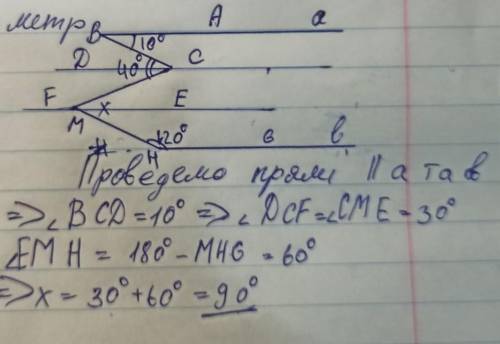 метр
B A a
10°
D 40° C
F x E
M
120° в b
H
Проведемо прямі || a та в
=> ∠BCD = 10° => ∠DCF = ∠CME = 30°
∠EMH = 180° - MHG = 60°
=> x = 30° + 60° = 90°